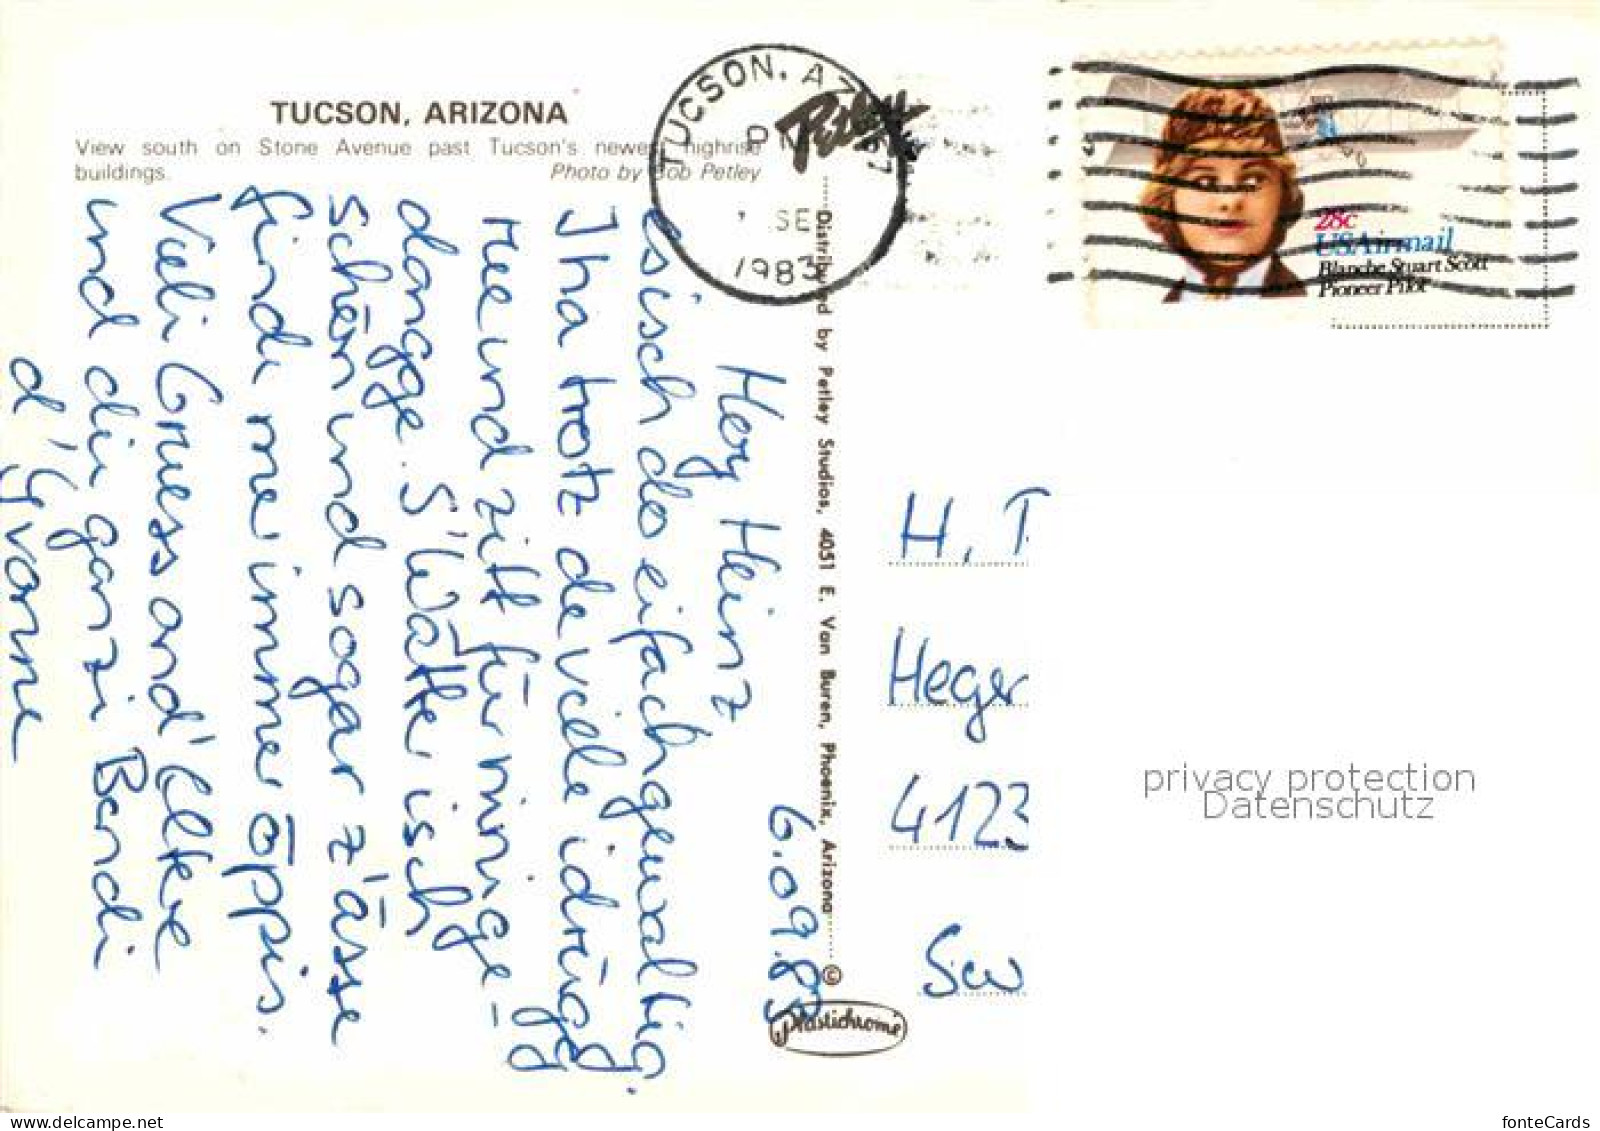 TUCSON, ARIZONA
View south on Stone Avenue past Tucson's newest highrise
buildings.
Photo by Bob Petley
TUCSON, AZ
PM
SE
1983
Petley
28c
USAirmail
Blanche Stuart Scott
Pioneer Pilot
Distributed by Petley Studios, 4051 E. Van Buren, Phoenix, Arizona
©
Plastichrome
6.09.83
Hoy Heinz
esisch do eifach gewaltig.
Iha trotz de viele idrügg
Me und zitt für mini ge-
dangge. S'Wätter isch
schön und sogar z'ässe
findi mei immer öppis.
Vieli Griess and' Eltere
und di ganzi Bandi
d'Yvonne
H. T
Heger
4123
Sw
privacy protection
Datenschutz
www.delcampe.net
fonteCards